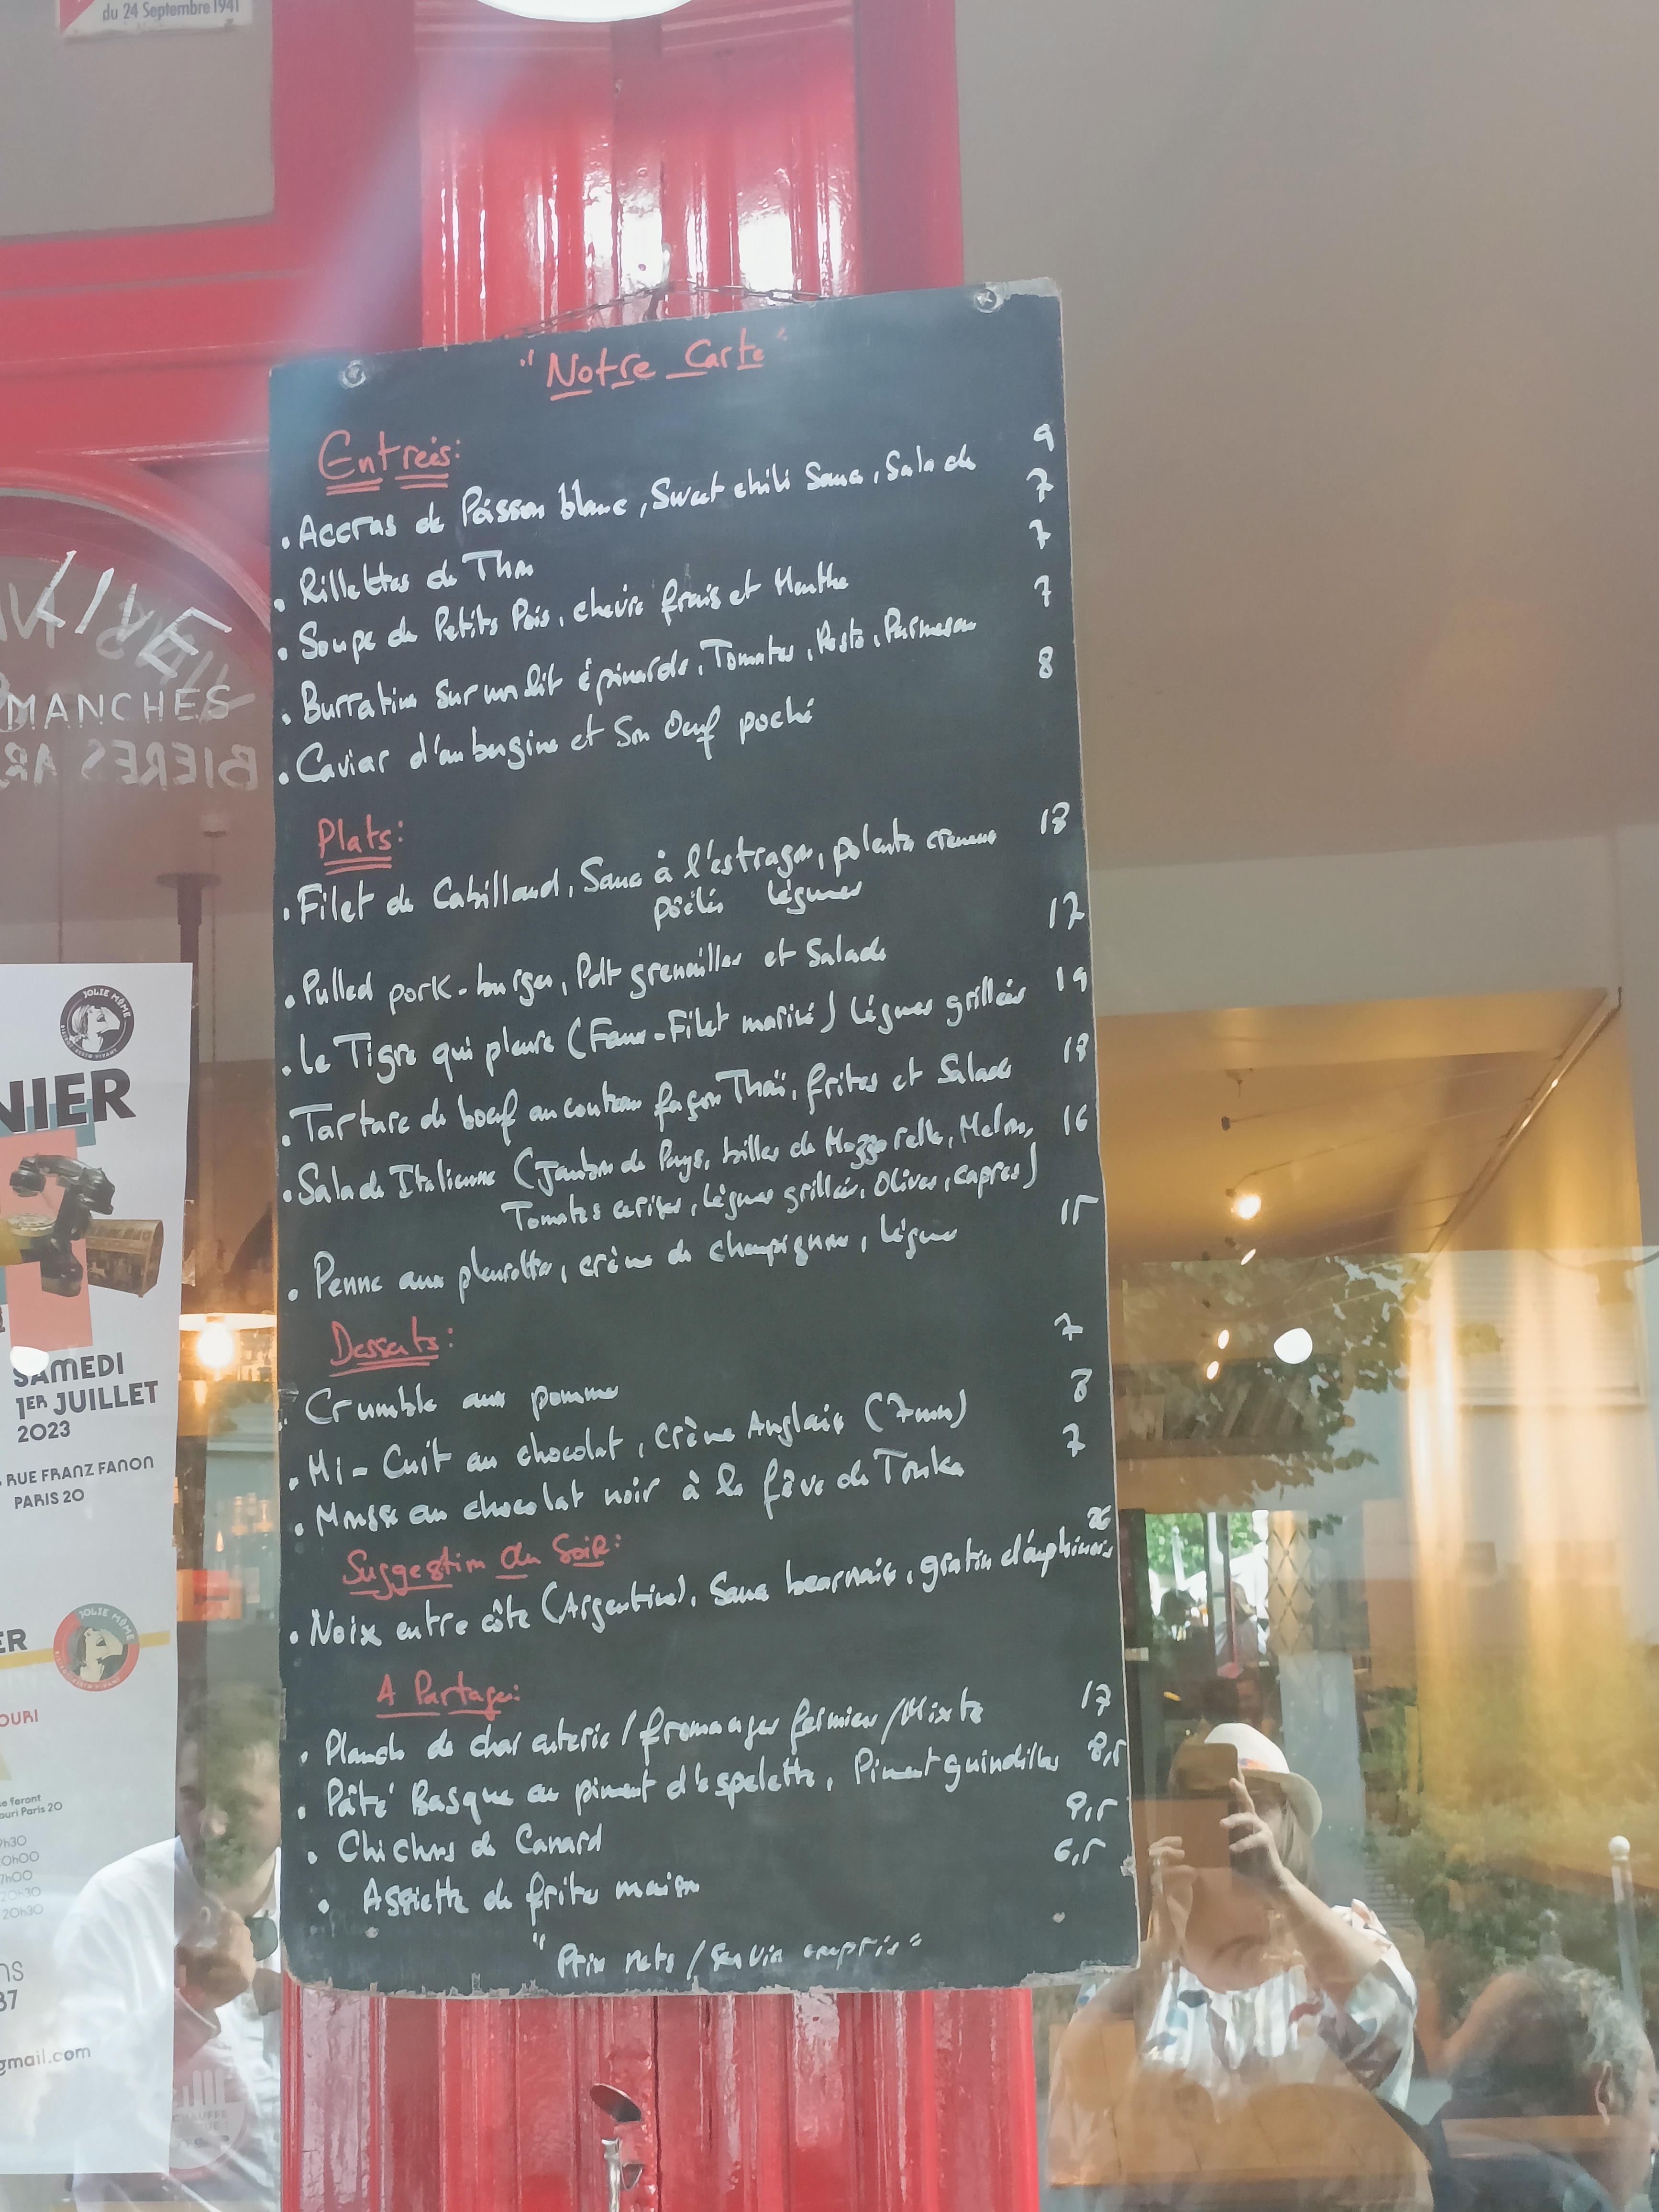 du 24 Septembre 1941
"Notre Carte"
Entrées:
• Accras de Poisson blanc, Sweet chili Sauce, Salade 9
• Rillettes de Thon 7
• Soupe de Petits Pois, chèvre frais et Menthe 7
• Burratina sur un lit épinards, Tomates, Pesto, Parmesan 7
• Caviar d'aubergine et Son Oeuf poché 8
Plats:
• Filet de Cabillaud, Sauce à l'estragon, polenta crémeuse 18
poêlés légumes
• Pulled pork-burger, Pdt grenailles et Salade 17
• Le Tigre qui pleure (Faux-Filet mariné) légumes grillés 19
• Tartare de boeuf au couteau façon Thaï, frites et Salade 18
• Salade Italienne (Jambon de Pays, billes de Mozzarella, Melon, 16
Tomates cerises, légumes grillés, Olives, capres)
• Penne aux pleurottes, crème de champignons, légumes 15
Desserts:
• Crumble aux pommes 7
• Mi-Cuit au chocolat, crème Anglaise (7mn) 8
• Mousse au chocolat noir à la fêve de Tonka 7
Suggestion du Soir:
• Noix entre côte (Argentine), Sauce bearnaise, gratin dauphinois 26
A Partager:
• Planche de charcuterie / fromages fermiers / Mixte 17
• Pâté Basque au piment d'espelette, Piment guindillas 8,5
• Chichons de Canard 8,5
• Assiette de frites maison 6,5
"Prix nets / Service compris"
LIVE
MANCHES
BIERES AR
JOLIE MÔME
NIER
SAMEDI
1ER JUILLET
2023
RUE FRANZ FANON
PARIS 20
ER
JOLIE MÔME
OURI
e feront
ouri Paris 20
9h30
0h00
7h00
20h30
20h30
ns
37
gmail.com